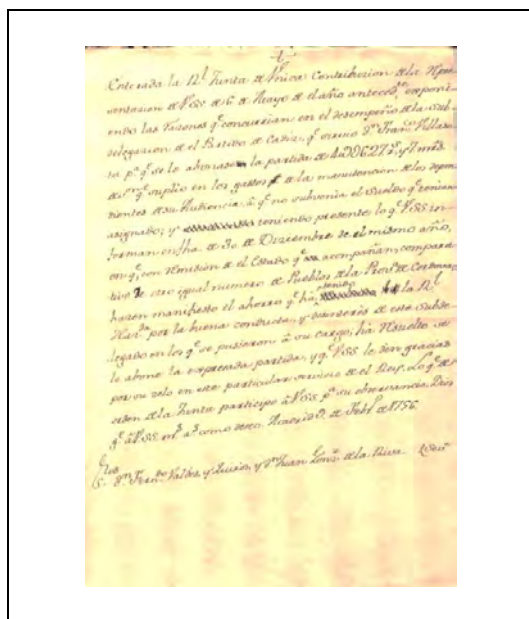 Enterada la Rl Junta de Única Contribucion de la Repre
sentacion de VSS de 6 de Mayo de el año antecedte, exponi
endo las razones qe concurrian en el desempeño de la Sub
delegacion de el Partido de Cadiz, qe exercio Dn Franco
ta pa qe se le abonase la partida de
de vn qe suplio en los gastos de la manutencion de los depen
dientes de su Audiencia, à qe no subvenia el sueldo qe tenian
asignado; y teniendo presente lo qe VSS in
forman en fha de 30 de Diziembre de el mismo año,
en qe, con remision de el Estado qe acompañan, compara
tivo de otro igual numero de Pueblos de la Prova de Cordova,
hazen manifiesto el ahorro qe ha tenido la Rl
Hazda por la buena conducta, y desinterés de este Subde
legado en los qe se pusieron à su cargo, ha resuelto se
le abone la expresada partida, y qe VSS le den gracias
por su zelo en este particular servicio de el Rey. Lo qe de
orden de la Junta participo à VSS pa su observancia. Dios
ge à VSS ms as como deseo. Madrid de Febro de 1756.
Sres
Dn Frando Valdes, y Quirós, y Dn Juan de la Riva